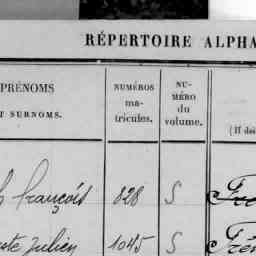 RÉPERTOIRE ALPHA
PRÉNOMS
T SURNOMS.
NUMÉROS
ma-
tricules.
NU-
MÉRO
du
volume.
(If doi
François 828 S
Julien 1045 S